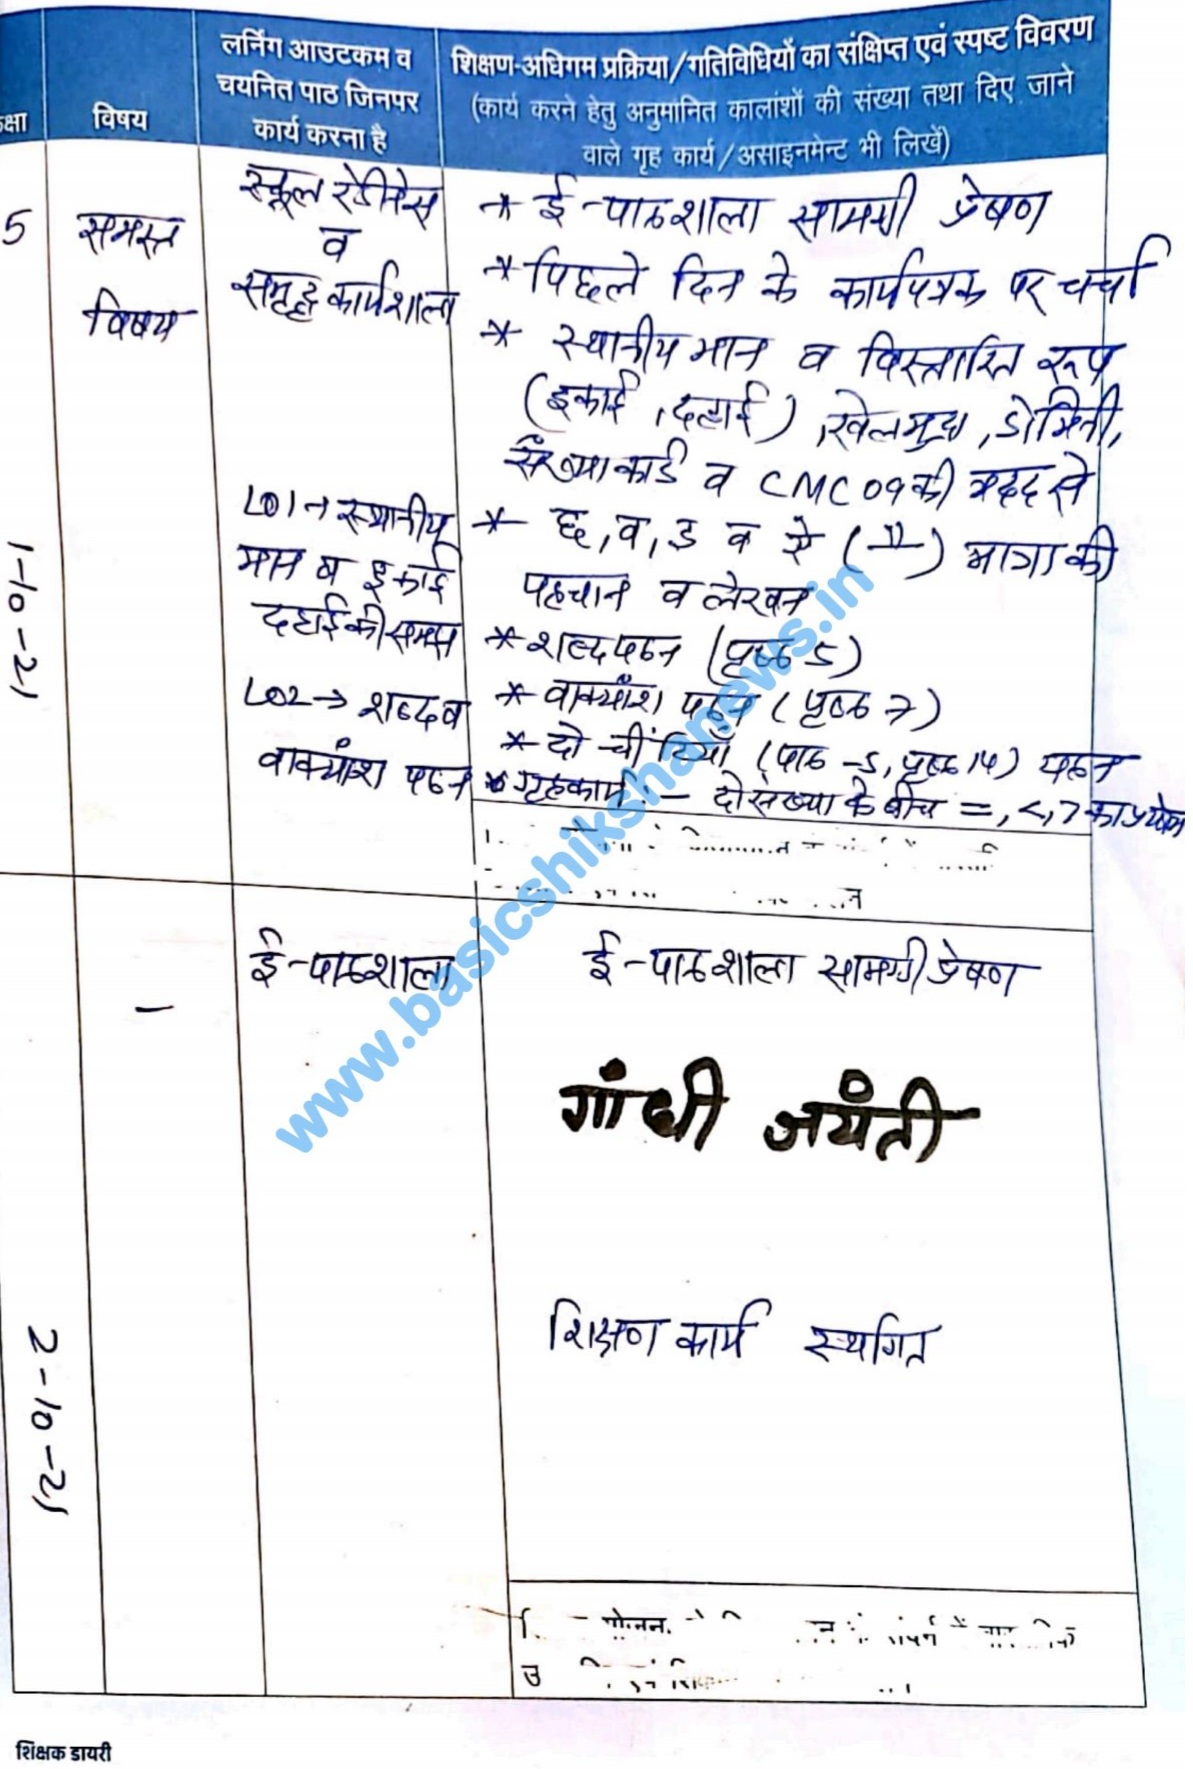 लर्निंग आउटकम व
चयनित पाठ जिनपर
कार्य करना है
शिक्षण-अधिगम प्रक्रिया/गतिविधियों का संक्षिप्त एवं स्पष्ट विवरण
(कार्य करने हेतु अनुमानित कालांशों की संख्या तथा दिए जाने
वाले गृह कार्य/असाइनमेंट भी लिखें)
विषय
5
समस्त
विषय
स्कूल रेडीनेस
व
समृद्ध कार्यशाला
* ई-पाठशाला सामग्री प्रेषण
* पिछले दिन के कार्यपत्रक पर चर्चा
* स्थानीय मान व विस्तारित रूप
(इकाई, दहाई), खेलमुद्रा, डोमिनो,
संख्याकार्ड व CMC 09 की मदद से
1-10-21
LO1→ स्थानीय
मान व इकाई
दहाई की समझ
LO2→ शब्द व
वाक्यांश पठन
* छ, व, ड व ऐ (ै) मात्रा की
पहचान व लेखन
* शब्द पठन (पृष्ठ 5)
* वाक्यांश पठन (पृष्ठ 7)
* दो चींटियाँ (पाठ -5, पृष्ठ 14) पठन
* गृहकार्य :- दो संख्या के बीच =, <, > का प्रयोग
2-10-21
-
ई-पाठशाला
ई-पाठशाला सामग्री प्रेषण
गांधी जयंती
शिक्षण कार्य स्थगित
शिक्षक डायरी
www.basicshikshanews.in